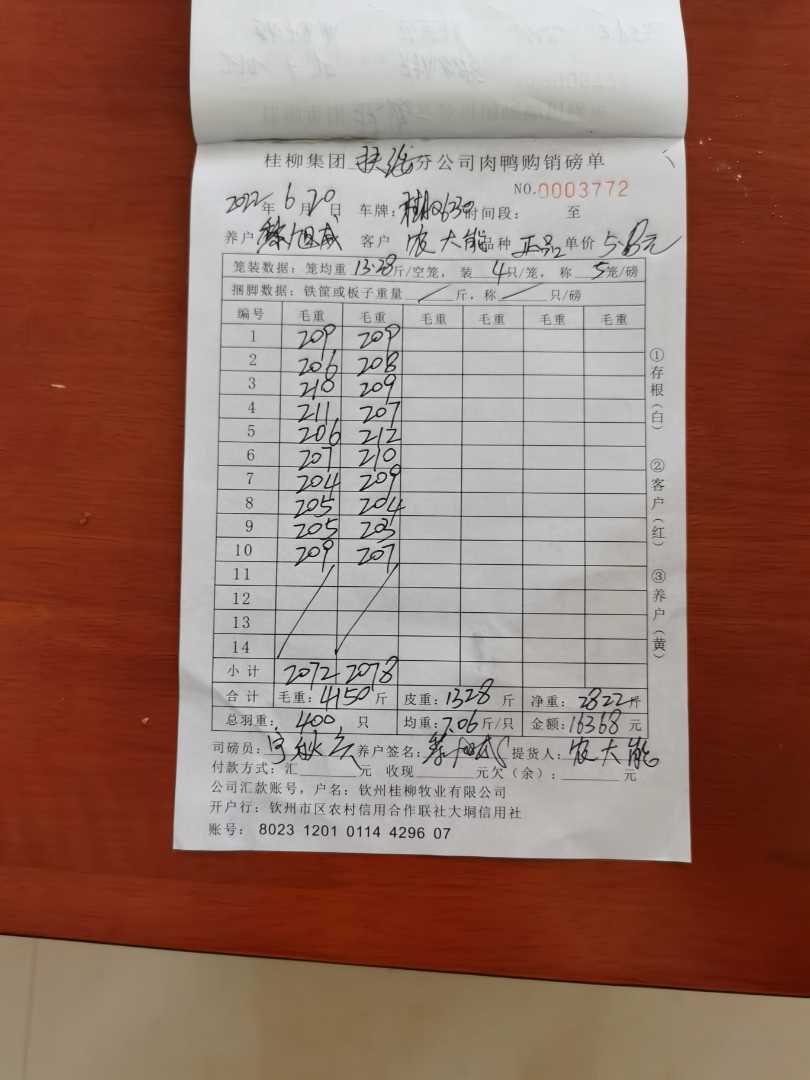 桂柳集团 扶绥 分公司肉鸭购销磅单
NO.0003772
2022年 6月 20日 车牌: 时间段: 至
养户 客户 农大能 品种 正品2 单价 5.8元
笼装数据: 笼均重 13.28斤/空笼, 装 4只/笼, 称 5笼/磅
捆脚数据: 铁筐或板子重量 / 斤, 称 / 只/磅
编号 毛重 毛重 毛重 毛重 毛重 毛重
1 209 209
2 206 208
3 210 209
4 211 207
5 206 212
6 207 210
7 204 209
8 205 204
9 205 203
10 209 207
11
12
13
14
小计 2072 2078
合计 毛重: 4150斤 皮重: 1328斤 净重: 2822斤
总羽重: 400 只 均重: 7.06斤/只 金额: 16368元
司磅员: 养户签名: 提货人: 农大能
付款方式: 汇 元 收现 元欠(余): 元
公司汇款账号, 户名: 钦州桂柳牧业有限公司
开户行: 钦州市区农村信用合作联社大垌信用社
账号: 8023 1201 0114 4296 07
①存根(白) ②客户(红) ③养户(黄)